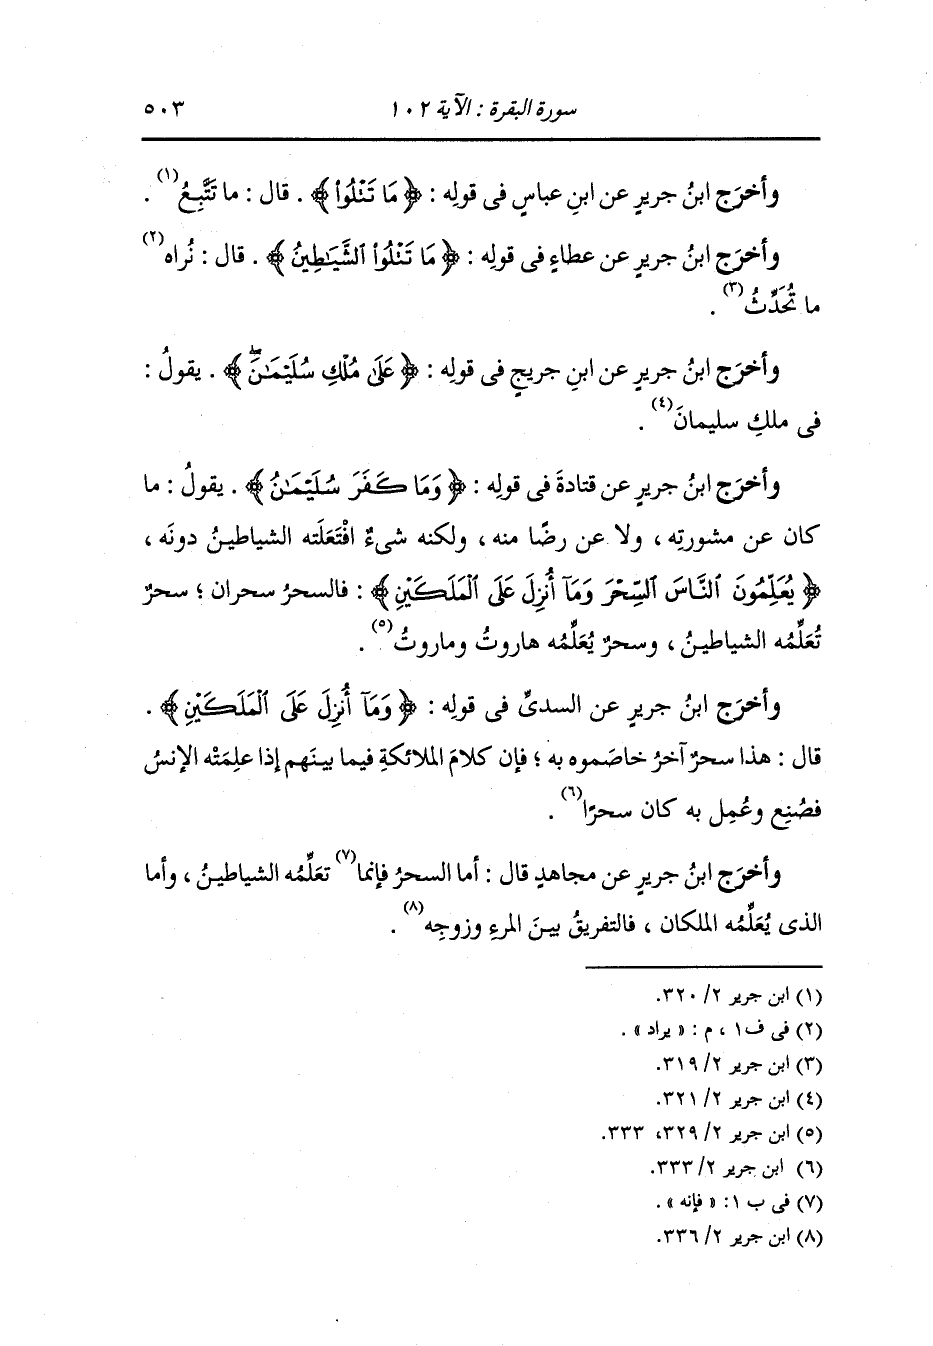 سورة البقرة : الآية ١٠٢ ٥٠٣
وأخرَج ابنُ جريرٍ عن ابنِ عباسٍ فى قولِه : ﴿ مَا تَتْلُوا۟ ﴾ . قال : ما تَتَّبِعُ(١) .
وأخرَج ابنُ جريرٍ عن عطاءٍ فى قولِه : ﴿ مَا تَتْلُوا۟ ٱلشَّيَـٰطِينُ ﴾ . قال : نُراه(٢)
ما تُحَدِّثُ(٣) .
وأخرَج ابنُ جريرٍ عن ابنِ جريجٍ فى قولِه : ﴿ عَلَىٰ مُلْكِ سُلَيْمَـٰنَۖ ﴾ . يقولُ :
فى ملكِ سليمانَ(٤) .
وأخرَج ابنُ جريرٍ عن قتادةَ فى قولِه : ﴿ وَمَا كَفَرَ سُلَيْمَـٰنُ ﴾ . يقولُ : ما
كان عن مشورتِه ، ولا عن رضًا منه ، ولكنه شىءٌ افْتَعَلَته الشياطينُ دونَه ،
﴿ يُعَلِّمُونَ ٱلنَّاسَ ٱلسِّحْرَ وَمَآ أُنزِلَ عَلَى ٱلْمَلَكَيْنِ ﴾ : فالسحرُ سحران ؛ سحرٌ
تُعَلِّمُه الشياطينُ ، وسحرٌ يُعَلِّمُه هاروتُ وماروتُ(٥) .
وأخرَج ابنُ جريرٍ عن السدىِّ فى قولِه : ﴿ وَمَآ أُنزِلَ عَلَى ٱلْمَلَكَيْنِ ﴾ .
قال : هذا سحرٌ آخرُ خاصَموه به ؛ فإن كلامَ الملائكةِ فيما بينَهم إذا علِمَتْه الإنسُ
فصُنِع وعُمِل به كان سحرًا(٦) .
وأخرَج ابنُ جريرٍ عن مجاهدٍ قال : أما السحرُ فإنما(٧) تعَلِّمُه الشياطينُ ، وأما
الذى يُعَلِّمُه الملكان ، فالتفريقُ بينَ المرءِ وزوجِه(٨) .
(١) ابن جرير ٢/ ٣٢٠.
(٢) فى ف١ ، م : « يراد » .
(٣) ابن جرير ٢/ ٣١٩.
(٤) ابن جرير ٢/ ٣٢١.
(٥) ابن جرير ٢/ ٣٢٩، ٣٣٣.
(٦) ابن جرير ٢/ ٣٣٣.
(٧) فى ب ١: « فإنه » .
(٨) ابن جرير ٢/ ٣٣٦.